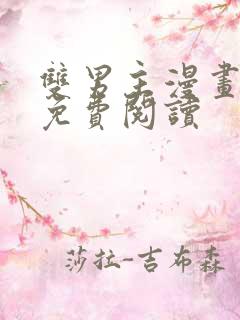 雙男主漫畫
免費閱讀
莎拉-吉布森